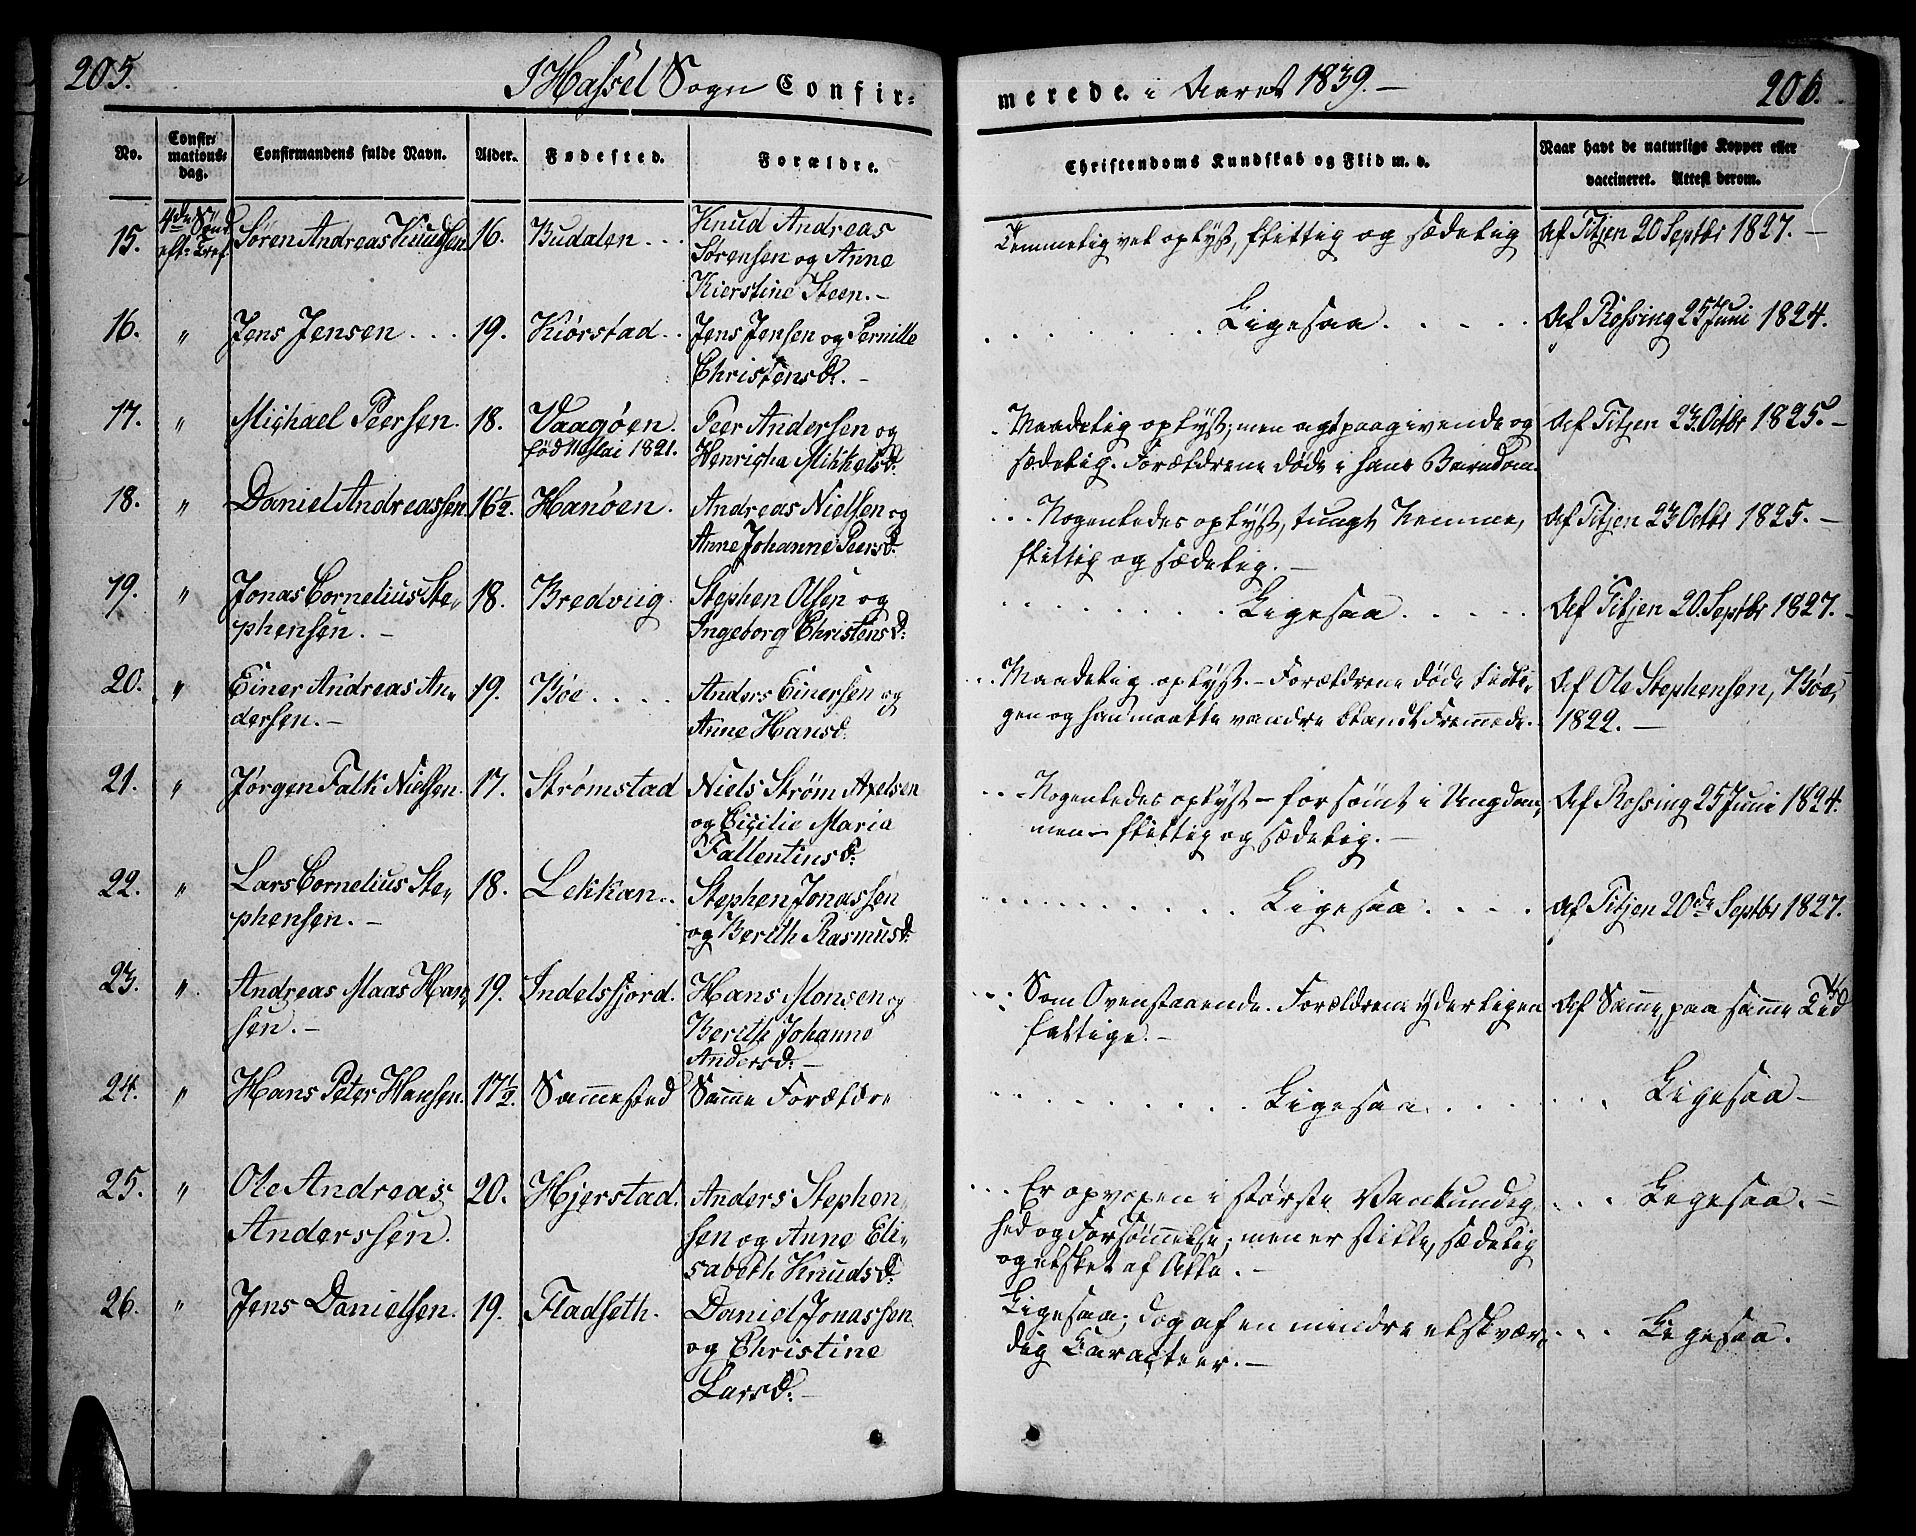 205.
I Hassel Sogn Confir-
merede. i Aaret 1839. -
206.
No.
Confir-
mations-
dag.
Confirmandens fulde Navn.
Alder.
Fødested.
Forældre.
Christendoms Kundskab og Flid m. v.
Naar havt de naturlige Kopper eller
vaccineret. Attest derom.
15.
4de Sönd.
eft: Tref.
Søren Andreas Knudsen
16.
Budalen . . .
Knud Andreas
Sørensen og Anne
Kierstine Steen. -
Temmelig vel oplyst, flittig og sædelig
Af Titjen 20 Septbr 1827. -
16.
"
Jens Jensen . . .
19.
Kiørstad . .
Jens Jensen og Pernille
Christensd. -
Ligesaa.
Af Rossing 25 Juni 1824.
17.
"
Michael Peersen.
18.
Vaagøen.
fød 11 Mai 1821.
Peer Andersen og
Henricha Mikkelsd:
Maadelig oplyst; men agtpaagivende og
sædelig. Forældrene døde i hans Barndom.
Af Titjen 23 Octbr 1825. -
18.
"
Daniel Andreassen
16½.
Hanøen.
Andreas Nielsen og
Anne Johanne Peersd:
Nogenledes oplyst, tungt Nemme,
flittig og sædelig. -
Af Titjen 23 Octbr 1825. -
19.
"
Jonas Cornelius Ste-
phensen. -
18.
Bredviig
Stephen Olsen og
Ingeborg Christensd:
Ligesaa
Af Titjen 20. Septbr 1827. -
20.
"
Einer Andreas An-
dersen. -
19.
Bøe . . . .
Anders Einersen og
Anne Hansd:
Maadelig oplyst. - Forældrene døde tidli-
gen og han maatte vandre blandt Fremmede. -
Af Ole Stephensen, Bøe,
1822. -
21.
"
Jørgen Falk Nielsen.
17.
Strømstad
Niels Strøm Axelsen
og Cicilie Maria
Fallentinsd:
Nogenledes oplyst - forsømt i Ungdom-
men - flittig og sædelig. -
Af Rossing 25 Juni 1824.
22.
"
Lars Cornelius Ste-
phensen. -
18.
Lekkan . .
Stephen Jonassen
og Berith Rasmusd:
Ligesaa
Af Titjen 20de Septbr 1827.
23.
"
Andreas Maas Han-
sen. -
19.
Indelsfjord.
Hans Monsen og
Berith Johanne
Andersd: -
Som Ovenstaaende. Forældrene yderligen
fattige. -
Af Samme, paa samme Tid
24.
"
Hans Peter Hansen.
17½.
Sammested
Samme Forældre
Ligesaa
Ligesaa -
25.
"
Ole Andreas
Anderssen.
20.
Hjerstad.
Anders Stephen-
sen og Anne Eli-
sabeth Knudsd:
Er opvoxen i største Vankundig-
hed og Forsømmelse; men er stille, sædelig
og elsket af Alle. -
Ligesaa. -
26.
"
Jens Danielsen.
19.
Fladseth.
Daniel Jonassen
og Christine
Larsd: -
Ligesaa; dog af en mindre elskvær-
dig Caracteer. -
Ligesaa.